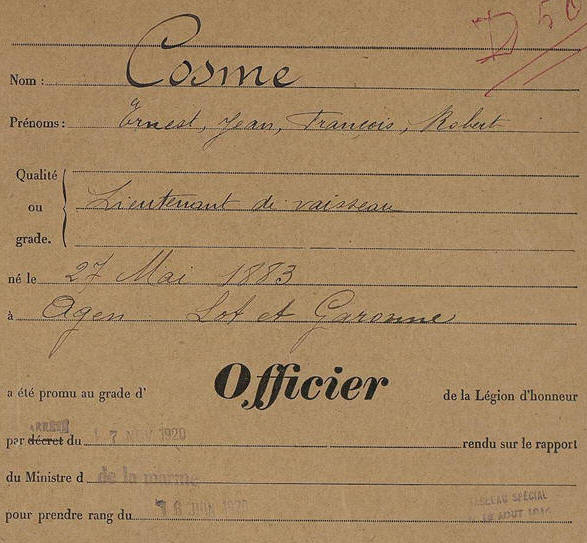 D 50
Nom : Cosme
Prénoms : Ernest, Jean, François, Robert
Qualité
ou Lieutenant de vaisseau
grade.
né le 27 Mai 1883
à Agen Lot et Garonne
a été promu au grade d' Officier de la Légion d'honneur
ARRÊTÉ
par décret du 1920 rendu sur le rapport
du Ministre d de la marine
TABLEAU SPÉCIAL
pour prendre rang du 1920 AOUT